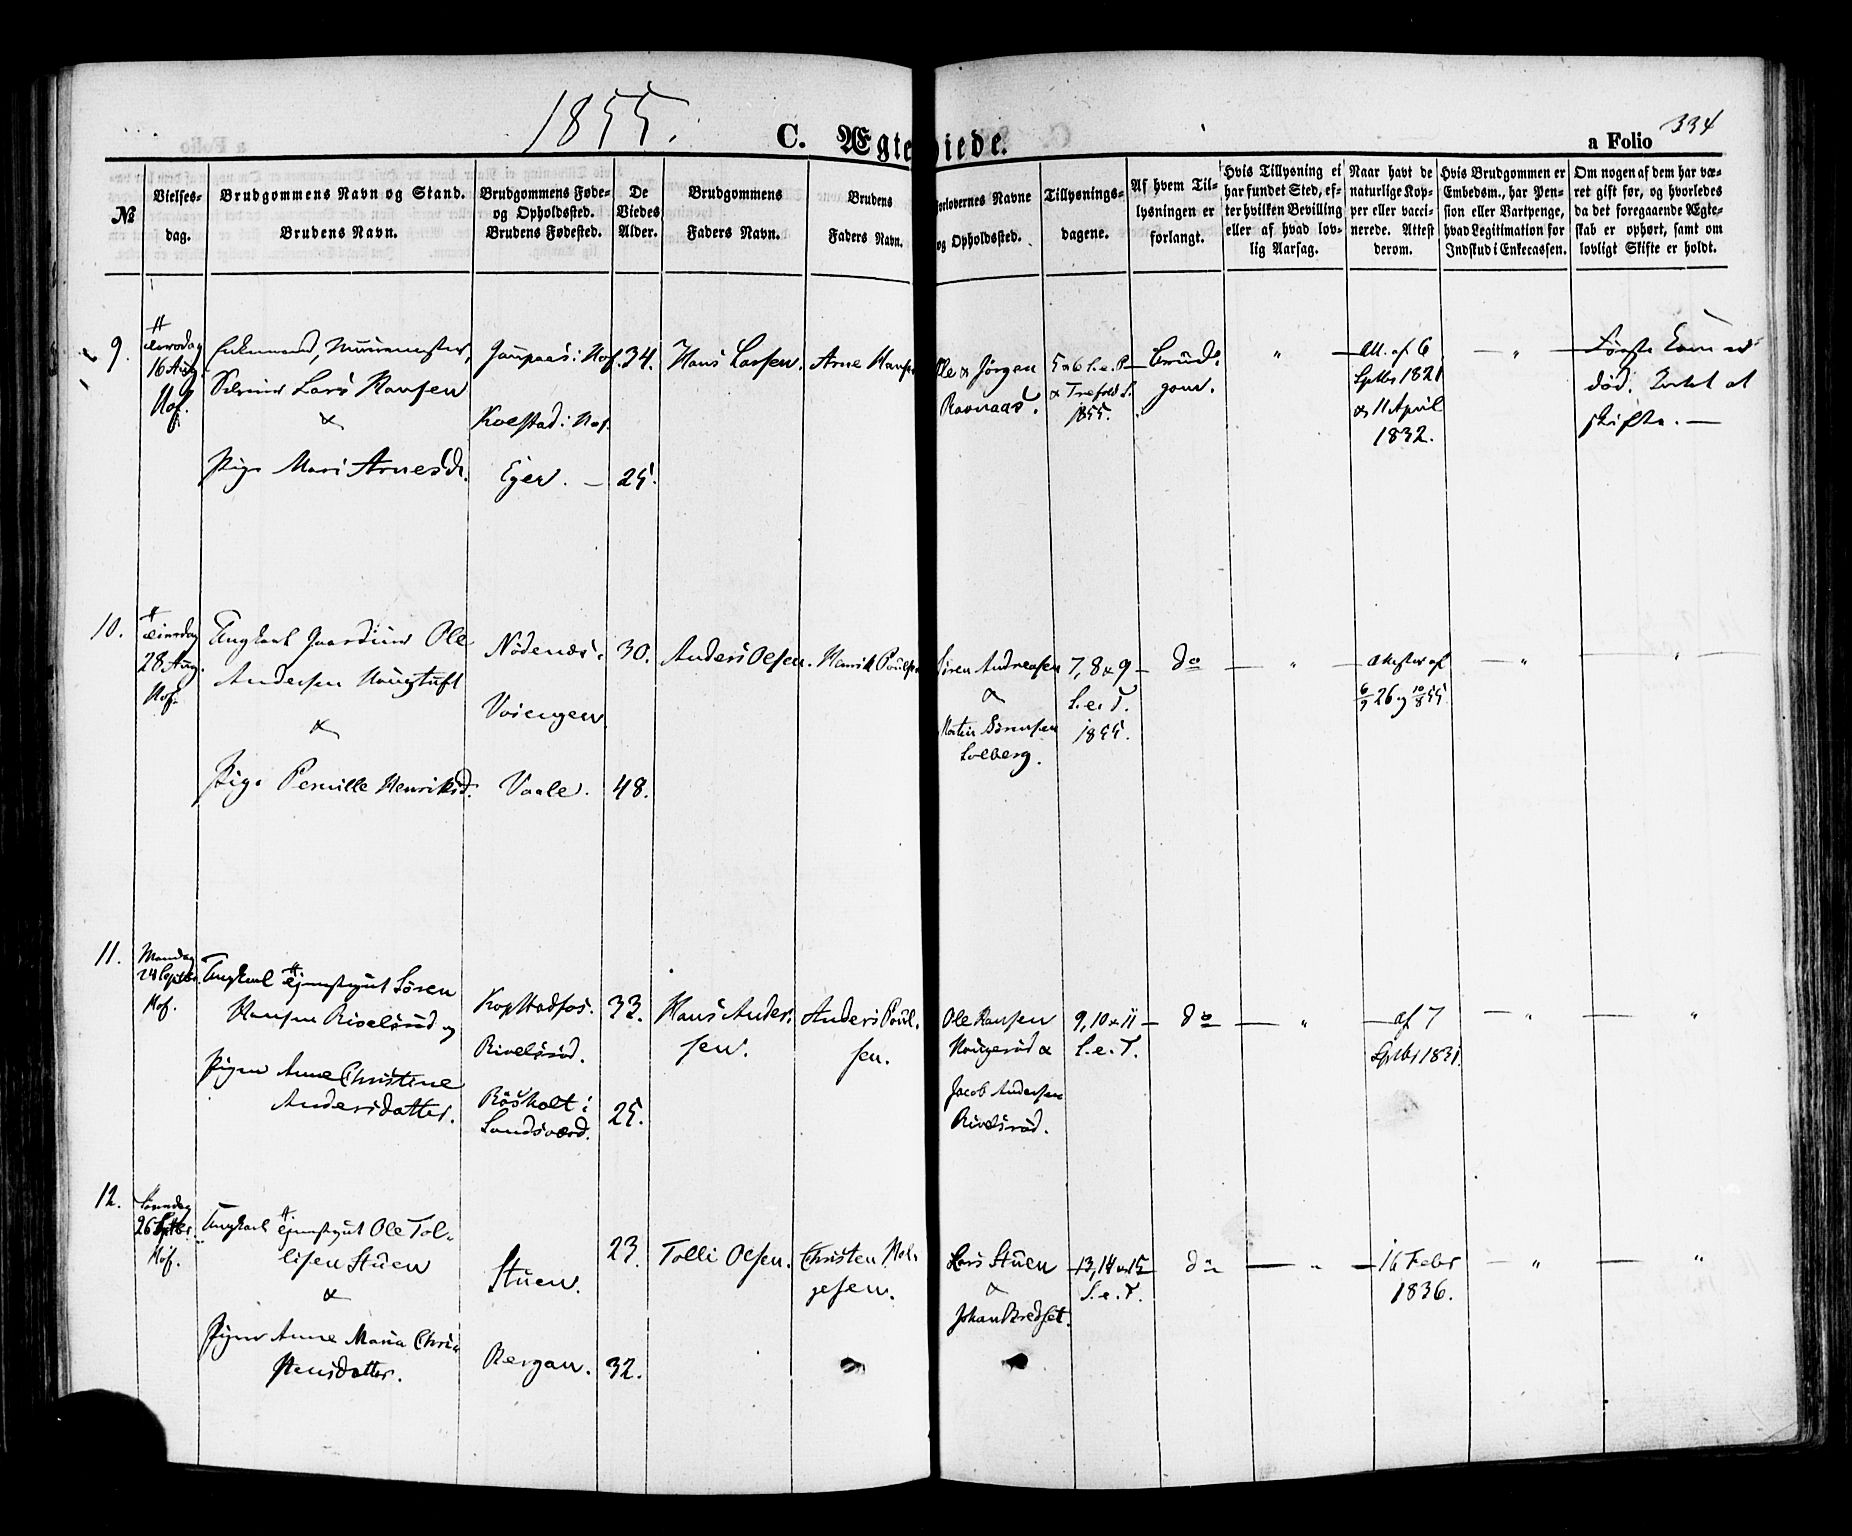 1855.
C. Ægteviede.
a Folio 334
№
Vielses-
dag.
Brudgommens Navn og Stand.
Brudens Navn.
Brudgommens Føde-
og Opholdssted.
Brudens Fødested.
De
Viedes
Alder.
Brudgommens
Faders Navn.
Brudens
Faders Navn.
Forlovernes Navne
og Opholdssted.
Tillysnings-
dagene.
Af hvem Til-
lysningen er
forlangt.
Hvis Tillysning ei
har fundet Sted, ef-
ter hvilken Bevilling
eller af hvad lov-
lig Aarsag.
Naar havt de
naturlige Kop-
per eller vacci-
nerede. Attest
derom.
Hvis Brudgommen er
Embedsm., har Pen-
sion eller Vartpenge,
hvad Legitimation for
Indskud i Enkecassen.
Om nogen af dem har væ-
ret gift før, og hvorledes
da det foregaaende Ægte-
skab er ophørt, samt om
lovligt Skifte er holdt.
9.
16 Aug.
Hof.
Enkemand, Muurmester,
Lars Hansen
&
Pige Mari Arnesdr.
i Hof.
Kolstad i Hof.
Eger. —
34.
25.
Hans Larsen.
Arne Hansen
Ole & Jörgen
Ravnaas.
5 & 6 S. e. P.
& Trefold. S.
1855.
Brud-
gom.
"
Att. af 6
Septbr 1821
& 11 April
1832.
— " —
Første Kone er
død. Intet at
skifte. —
10.
Tirsdag
28 Aug.
Hof.
Ungkarl Gaardmd Ole
Andersen Haugtuft
&
Pige Pernille Henriksd.
Nödenæs.
Vaale.
30.
48.
Anders Olsen.
Henrik Poulsen
Sören Andreasen
&
Martin Sörensen
Solberg.
7, 8 & 9
S. e. T.
1855.
— do —
"
Attester af
6/9 26 og 10/8 55.
— " —
"
11.
Mandag
24 Septbr.
Hof.
Ungkarl Tjenestgut Sören
Hansen Rivelsrud og
Pigen Anne Christine
Andersdatter.
Kopstadfos.
Rivelsröd.
Röskolt i
Sandsværd.
33.
25.
Hans Ander-
sen.
Anders Poul-
sen.
Ole Hansen
Haugeröd &
Jacob Andersen
Rivelsröd.
9, 10 & 11
S. e. T.
— do —
"
— af 7
Septbr 1831.
— " —
"
12.
26 Septbr.
Hof.
Ungkarl Tjenestgut Ole Tol-
lisen Stuen
&
Pigen Anne Maria Chri-
stensdatter.
Stuen.
Bergan.
23.
32.
Tolli Olsen.
Christen Hel-
gesen.
Lars Stuen
&
13, 14 & 15
S. e. T.
do
— " —
16 Febr
1836.
— " —
"